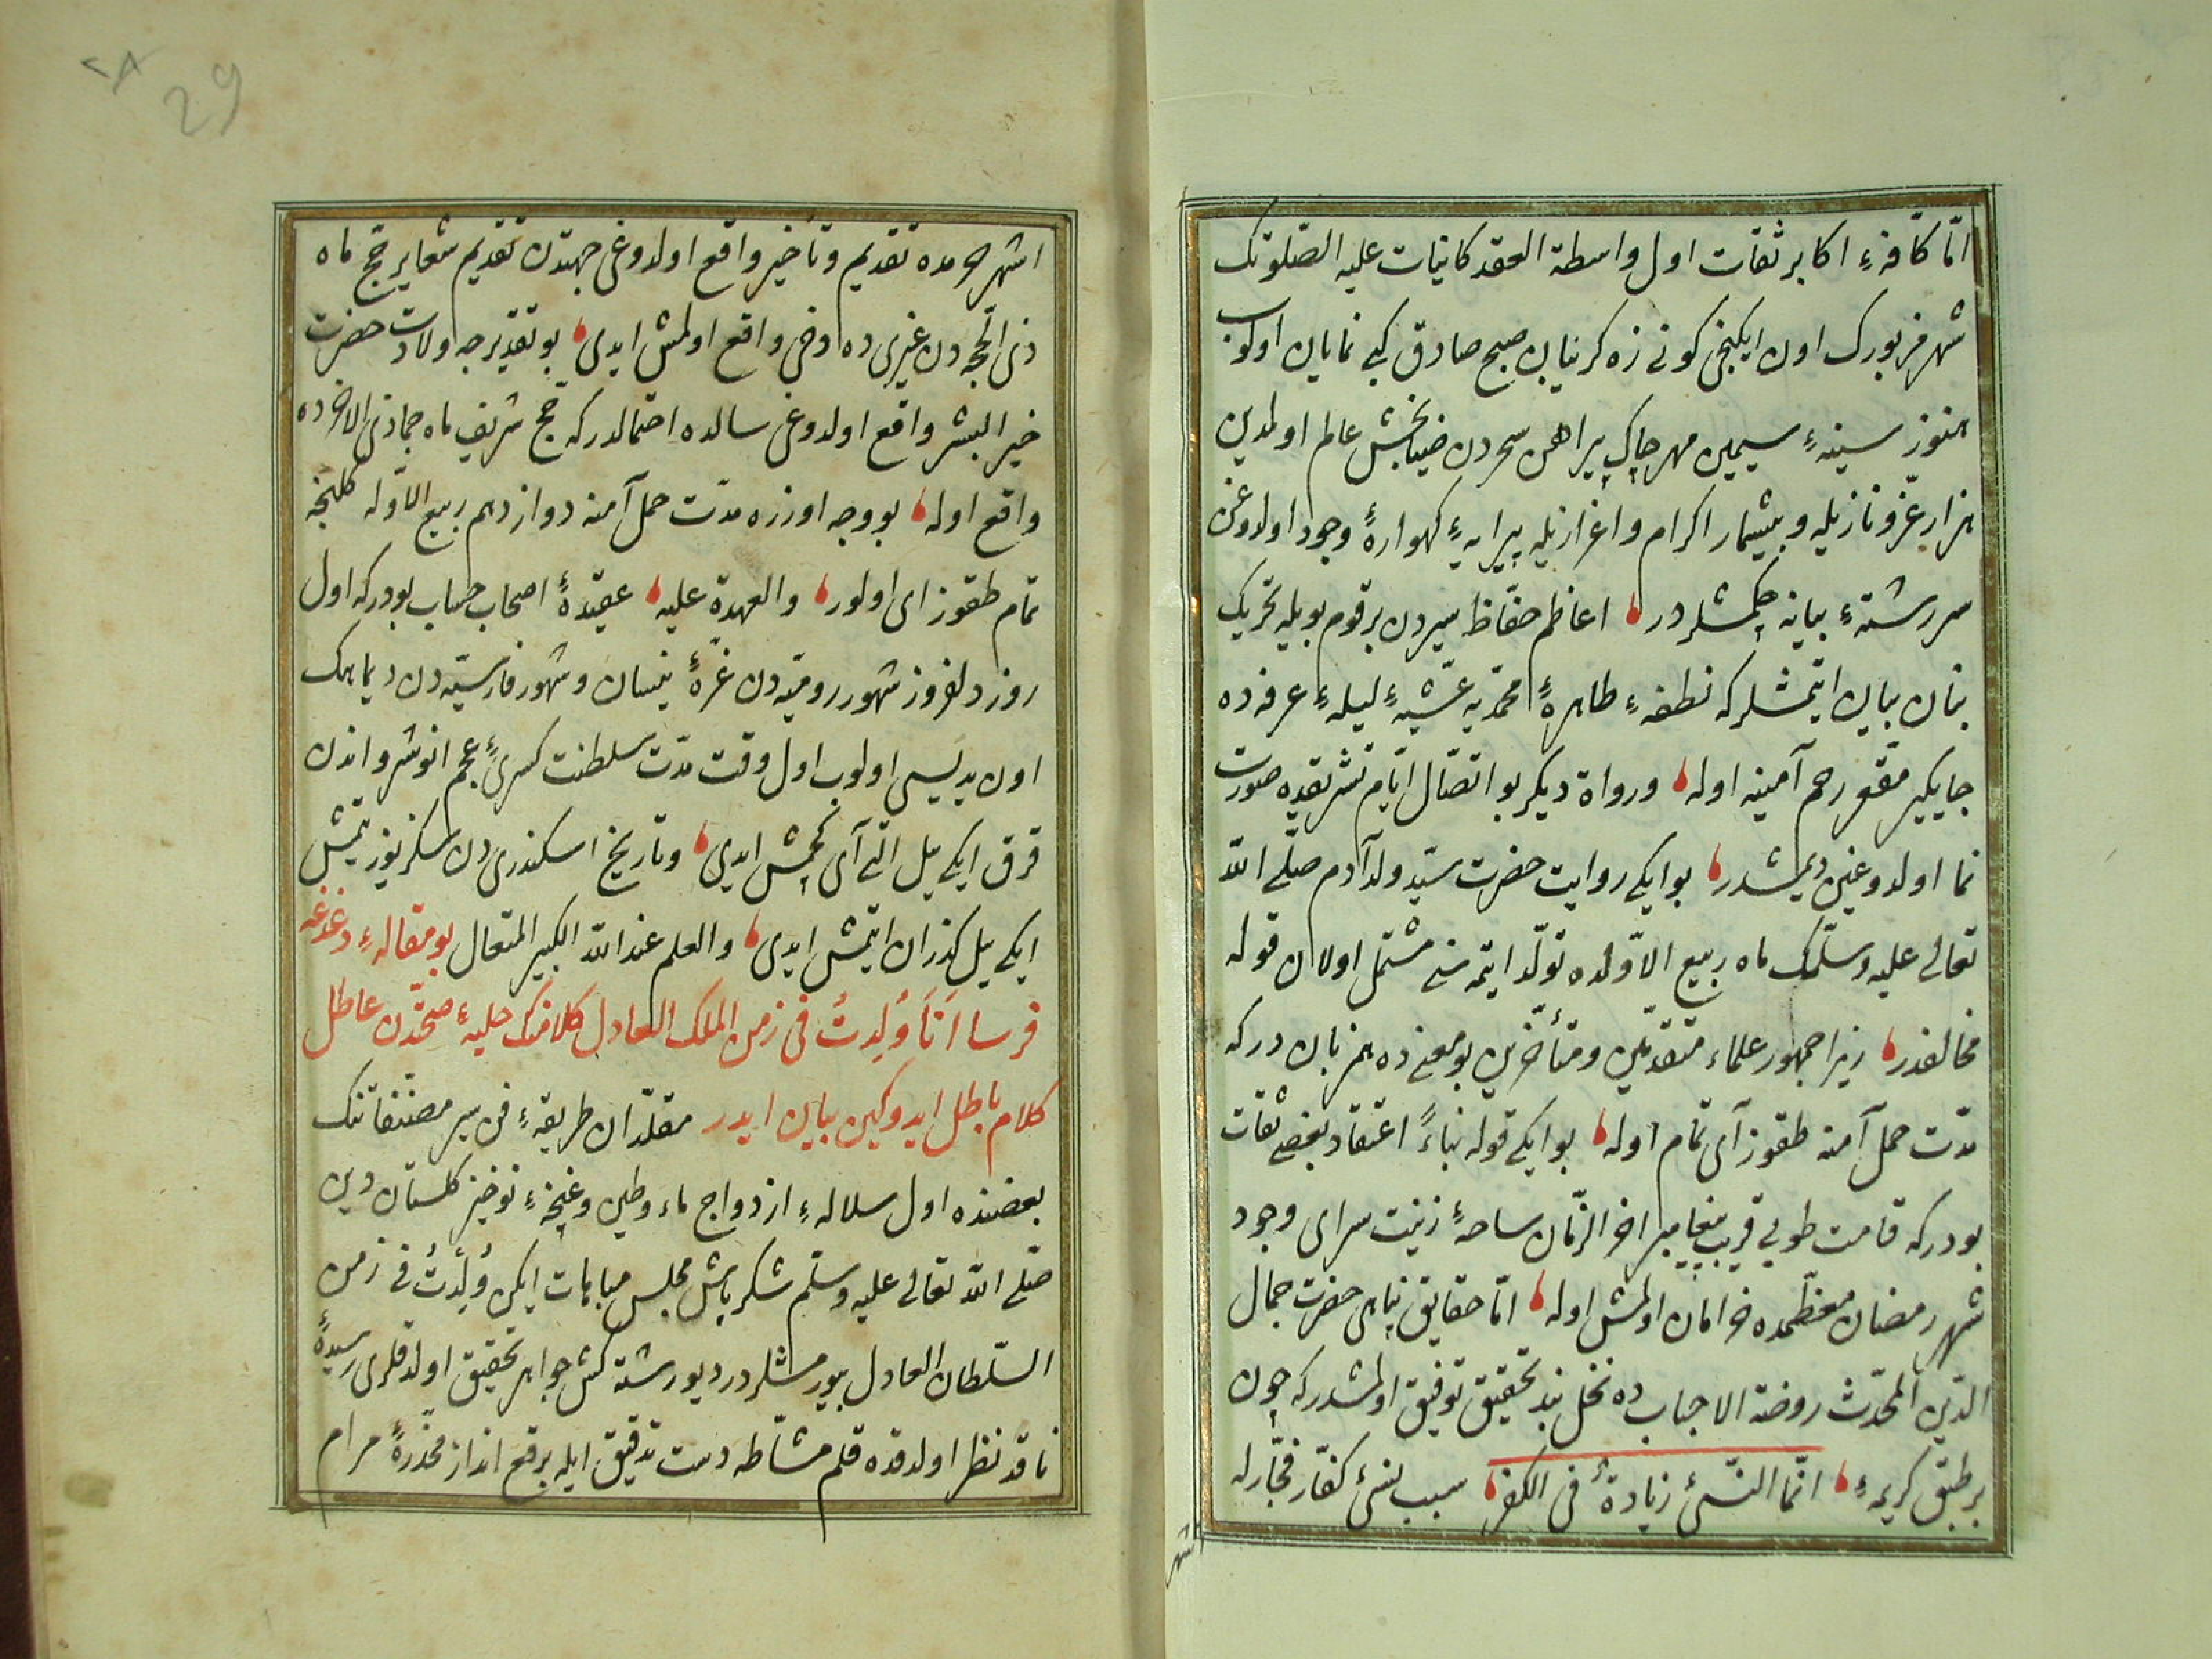 امّا كافّهٔ اكابر ثقات اول واسطة العقد كائنات عليه الصّلوتك
شهر مزبورك اون ايكنجى كونى زه كريبان صبح صادق كبى نمايان اولوب
هنوز سينهٔ سيمين مهر چاك پيراهن سحردن ضيابخش عالم اولمدين
هزار عزّ و نازيله و بيشمار اكرام و اعزازيله پيرايهٔ كهوارهٔ وجود اولدوغن
سررشتهٔ بيانه چكمشلردر اعاظم حفّاظ سيردن برقوم بويله تحريك
بنان بيان ايتمشلركه نطفهٔ طاهرهٔ محمّديه عشيّهٔ ليلهٔ عرفه ده
جايكير مقعر رحم آمنه اوله و رواة ديكر بو اتّصال ايّام تشريقده صورت
نما اولدوغين ديمشلر بو ايكى روايت حضرت سيّد ولد آدم صلّى الله
تعالى عليه وسلّمك ماه ربيع الاوّلده تولّد ايتمه سنى مشتمل اولان قوله
مخالفدر زيرا جمهور علماء متقدّمين و متأخّرين بو معنى ده همزبان دركه
مدّت حمل آمنه طقوز آى تمام اوله بو ايكى قوله بناءً اعتقاد بعض ثقات
بودركه قامت طوبى قريب پيغامبر اخر الزّمان ساحهٔ زينت سراى وجود
شهر رمضان معظّمده خرامان اولمش اوله امّا حقايق پناهى حضرت جمال
الدّين المحدّث روضة الاحباب ده نخل بند تحقيق توفيق اولمشدركه چون
بر طبق كريمهٔ انّما النّسئ زيادةٌ فى الكفر سبب نسئ كفّار فجّارله
اشهر
29
٢٨
اشهر حرمده تقديم و تأخير واقع اولدوغى جهتدن تقديم شعاير حجّ ماه
ذى الحجّه دن غيرى ده دخى واقع اولمش ايدى بو تقديرجه ولادت حضرت
خير البشر واقع اولدوغى سالده احتمالدركه حجّ شريف ماه جماذى الاخرده
واقع اوله بو وجه اوزره مدّت حمل آمنه دوازدهم ربيع الاوّله كلنجه
تمام طقوز اى اولور والعهدة عليه عقيدهٔ اصحاب حساب بودركه اول
روز دلفروز شهور روميّه دن غرّهٔ نيسان و شهور فارسيّه دن ديماهك
اون يديسى اولوب اول وقت مدّت سلطنت كسرىٔ عجم انوشرواندن
قرق ايكى ييل التى آى كچمش ايدى و تاريخ اسكندرى دن سكز يوز يتمش
ايكى ييل كذران ايتمش ايدى والعلم عند الله الكبير المتعال بو مقالهٔ دغدغه
فرسا اَنَا وُلِدتُ فى زمن الملك العادل كلامنك حليهٔ صحّتدن عاطل
كلام باطل ايدوكين بيان ايدر مقلّدان طريقهٔ فن سير مصنّفاتنك
بعضنده اول سلالهٔ ازدواج ماء و طين و غنچهٔ نوخيز كلستان دين
صلّى الله تعالى عليه وسلّم شكرپاش مجلس مباهات ايكن وُلِدْتُ فى زمن
السّلطان العادل بيورمشلردر ديو رشته كش جواهر تحقيق اولدقلرى رسيدهٔ
ناقد نظر اولدقده قلم مشّاطه دست تدقيق ايله برقع انداز مخدّرهٔ مرام